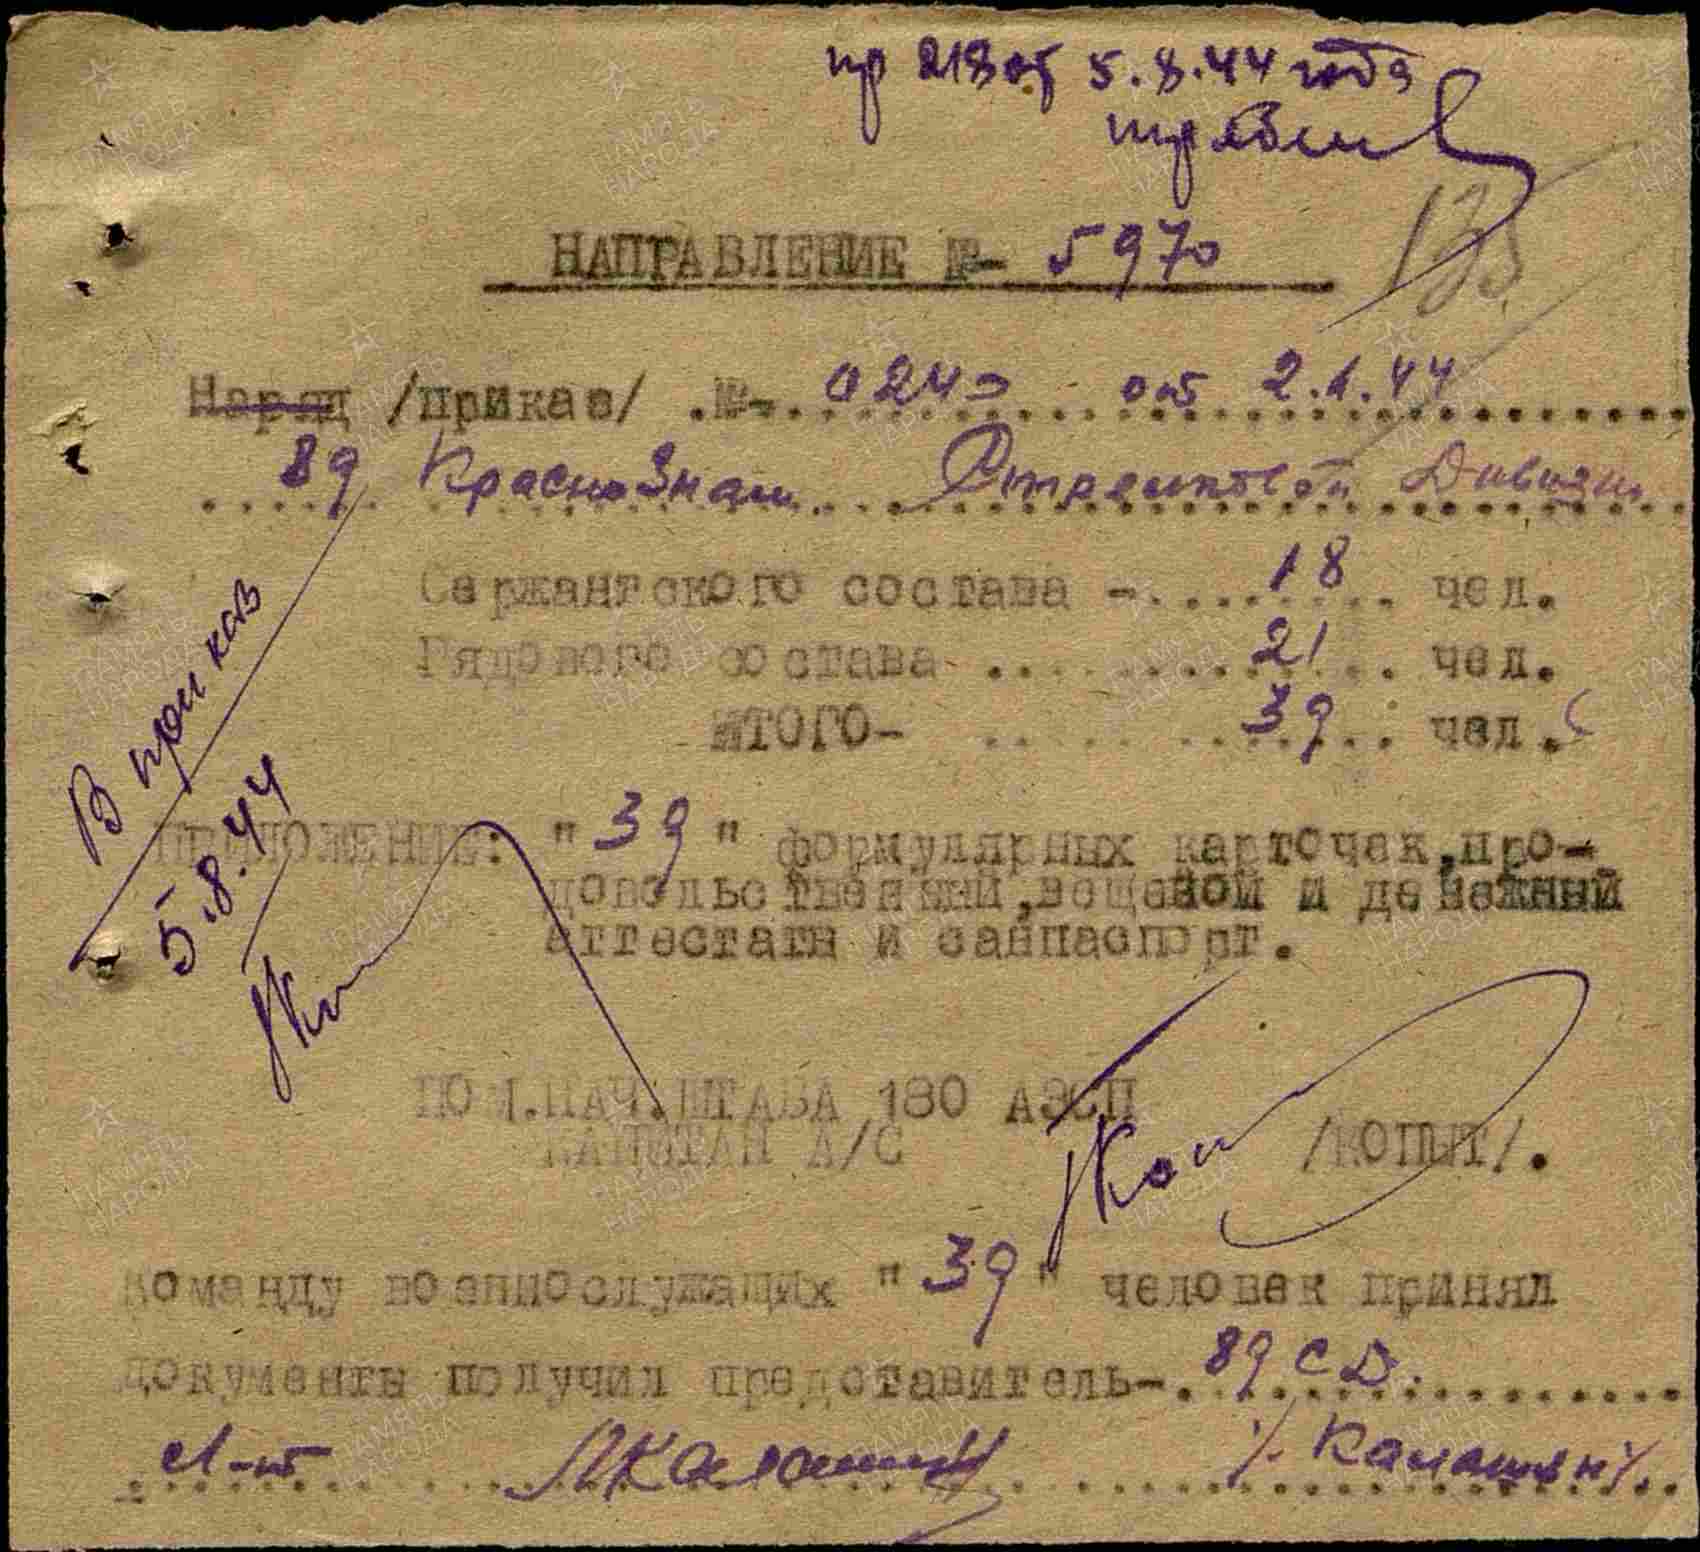 пр 218 от 5.8.44 года
НАПРАВЛЕНИЕ №- 5970
Наряд /приказ/ .№-. 0240 от 2.1.44
89 КрасноЗнам. Стрелковой Дивизии
Сержантского состава -. 18 чел.
Рядового состава 21 чел.
ИТОГО- 39 чел.
В приказ
5.8.44
ПРИЛОЖЕНИЕ: "39" формулярных карточек, про-
довольственный, вещевой и денежный
аттестаты и санпаспорт.
ПОМ.НАЧ.ШТАБА 180 АЗСП
КАПИТАН А/С /КОПЫТ/.
Команду военнослужащих "39" человек принял
документы получил представитель-. 89 СД.
Л-т Калашин /Калашин/.